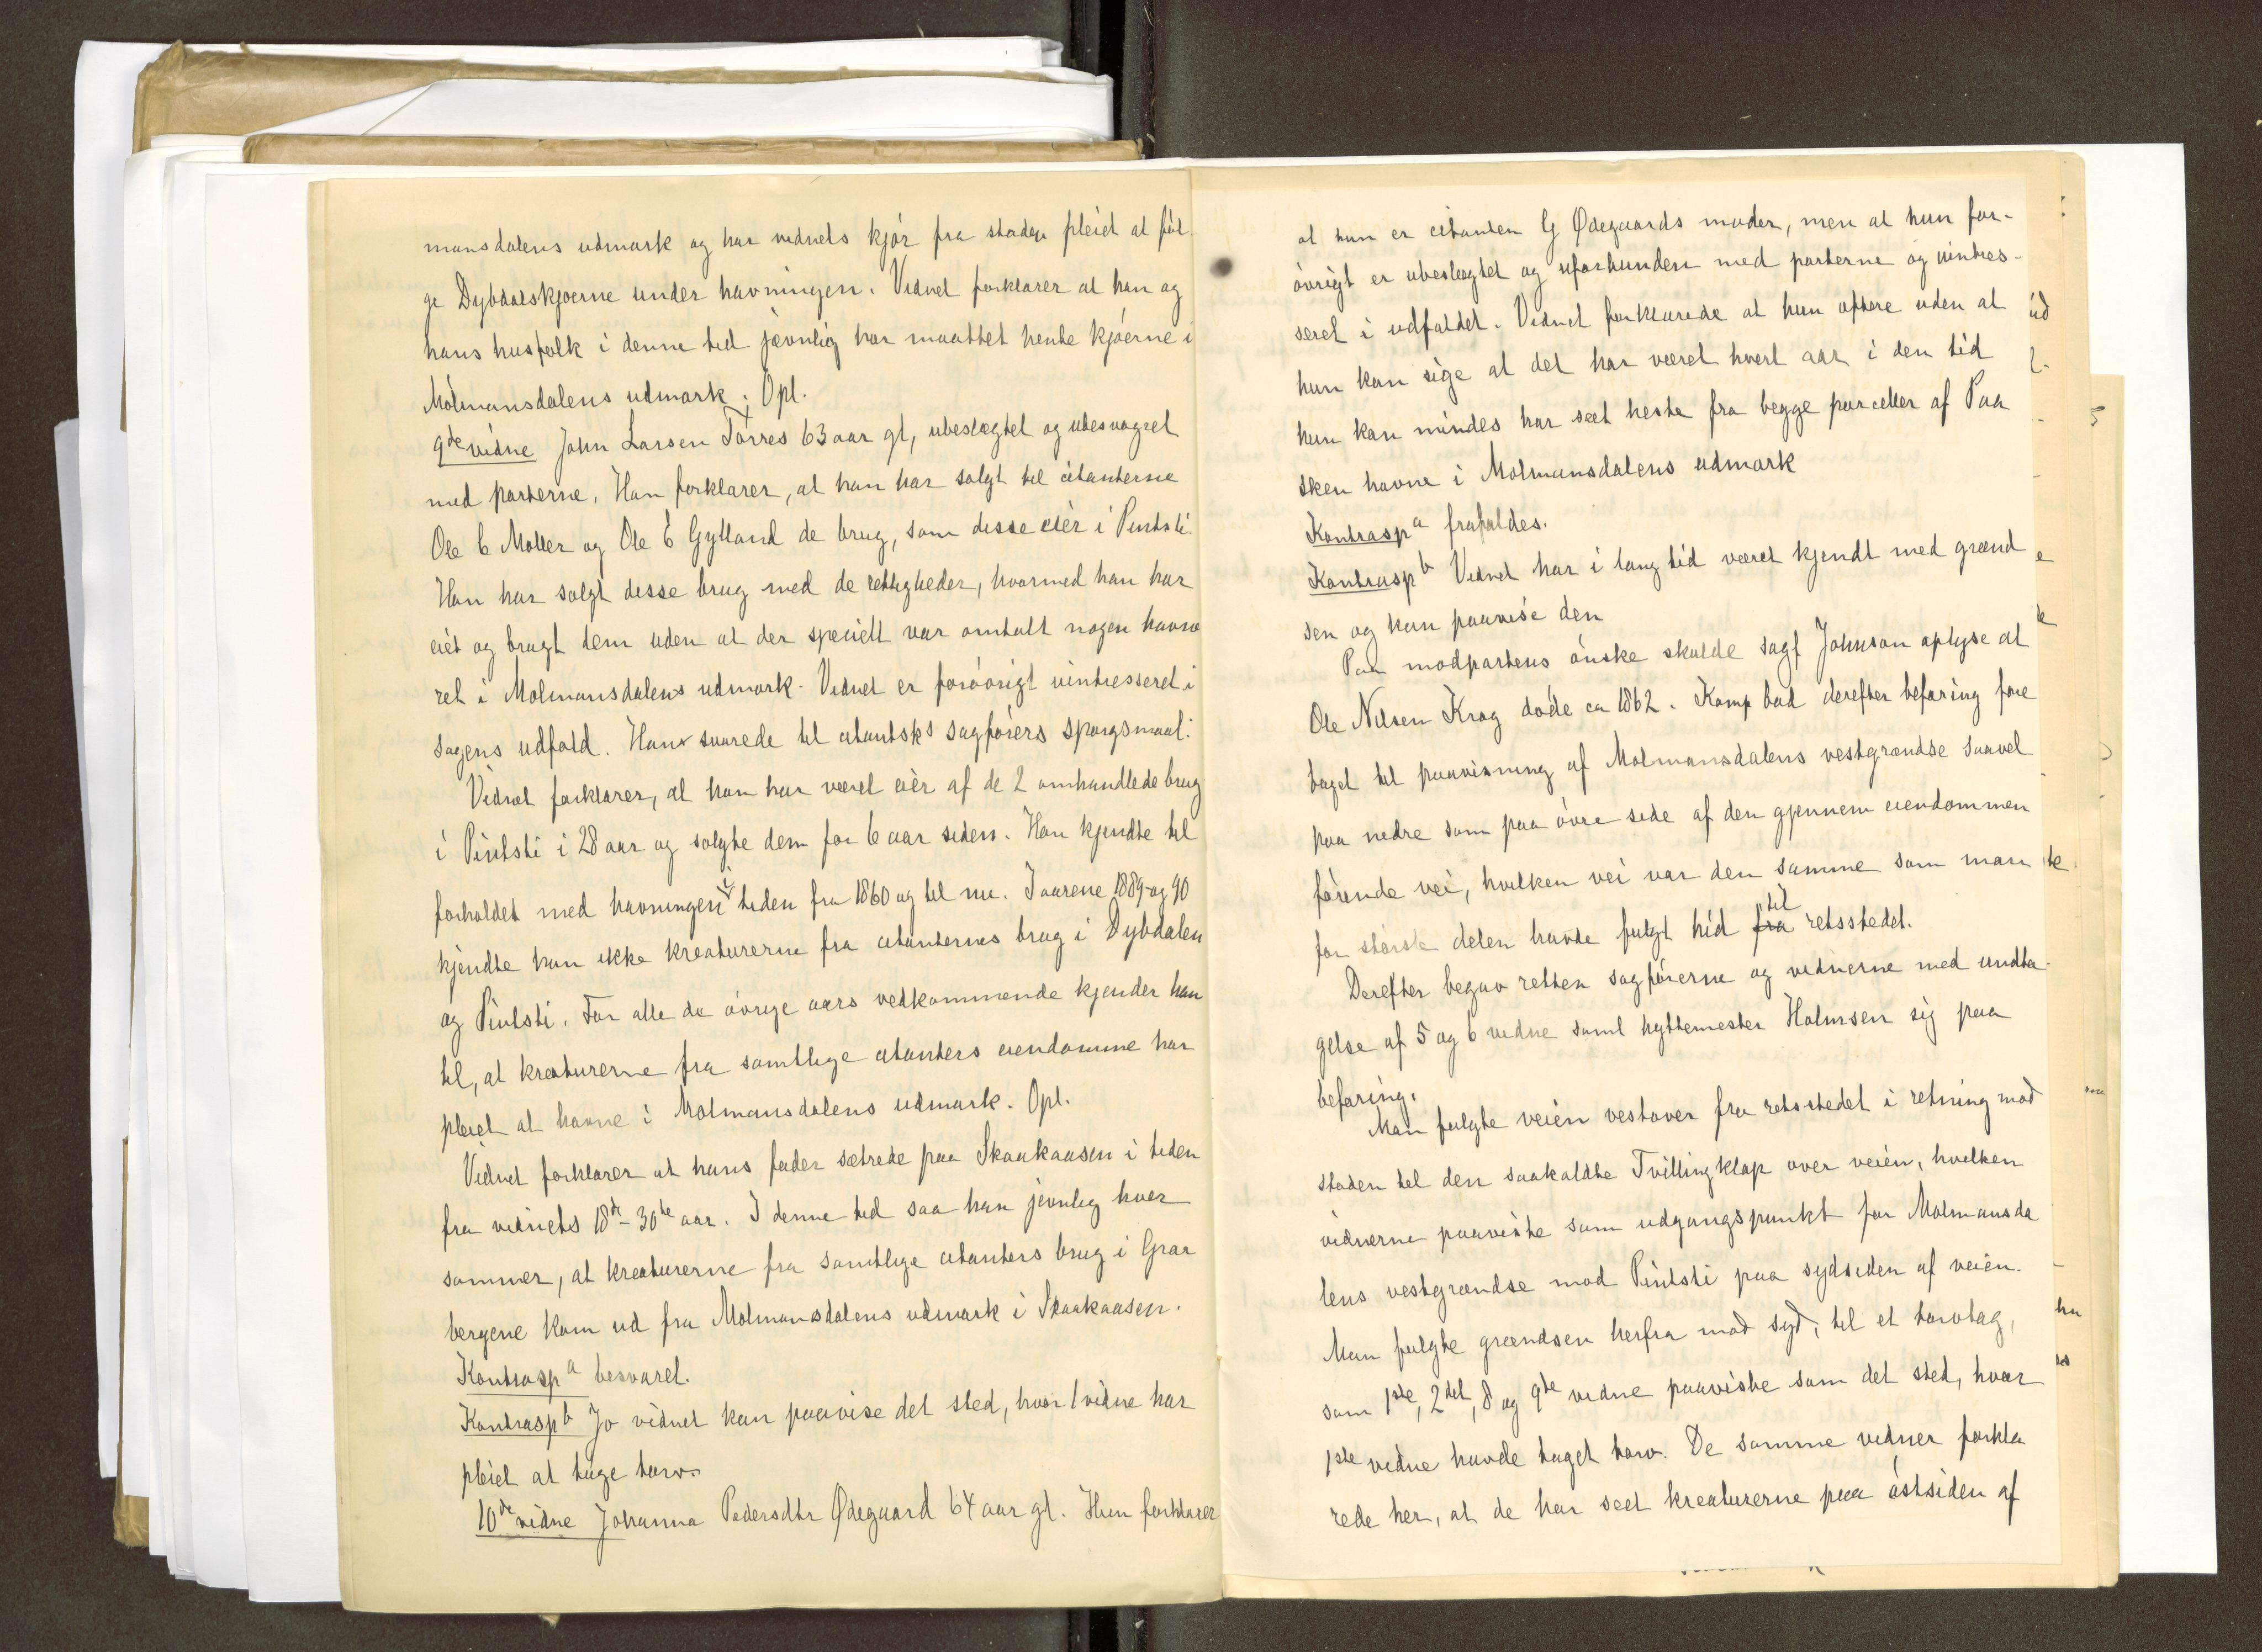 mansdalens udmark og har vidnets kjør fra staden pleiet at føl-
ge Dybdalskjøerne under havningen. Vidnet forklarer at han og
hans husfolk i denne tid jævnlig har maattet hente kjøerne i
Mólmansdalens udmark. Opl.
9de vidne John Larsen Tørres 63 aar gl, ubeslægtet og ubesvogret
med parterne. Han forklarer, at han har solgt til citanterne
Ole C Møller og Ole E Gylland de brug, som disse eier i Pintsti.
Han har solgt disse brug med de rettigheder, hvormed han har
eiet og brugt dem uden at der specielt var omtalt nogen havne
ret i Molmansdalens udmark. Vidnet er forøvrigt uintresseret i
sagens udfald. Han svarede til citantsks sagførers spørgsmaal:
Vidnet forklarer, at han har været eier af de 2 omhandlede brug
i Pintsti i 28 aar og solgte dem for 6 aar siden. Han kjendte til
forholdet med havningen i tiden fra 1860 og til nu. I aarene 1889 og 90
kjendte han ikke kreaturerne fra citanternes brug i Dybdalen
og Pintsti. For alle de øvrige aars vedkommende kjender han
til, at kreaturerne fra samtlige citanters eiendomme har
pleiet at havne i Molmansdalens udmark. Opl.
Vidnet forklarer at hans fader sætrede paa Skaakaasen i tiden
fra vidnets 18de - 30te aar. I denne tid saa han jevnlig hver
sommer, at kreaturerne fra samtlige citanters brug i Graa
bergene kom ud fra Molmansdalens udmark i Skaakaasen.
Kontrasp a besvaret.
Kontrasp b Jo vidnet kan paavise det sted, hvor 1 vidne har
pleiet at tage torv.
10de vidne Johanna Pedersdtr Ødegaard 64 aar gl. Hun forklarer
at hun er citanten G Ødegaards moder, men at hun for-
øvrigt er ubeslægtet og uforbunden med parterne og uintres-
seret i udfaldet. Vidnet forklarede at hun oftere uden at
hun kan sige at det har været hvert aar i den tid
hun kan mindes har seet heste fra begge parceller af Paa
sken havne i Molmansdalens udmark
Kontrasp a frafaldes.
Kontrasp b Vidnet har i lang tid været kjendt med grænd
sen og kan paavise den
Paa modpartens ønske skulde sagf Johnson oplyse at
Ole Nilsen Krog døde ca 1862. Komp bad derefter befaring fore
taget til paavisning af Molmansdalens vestgrændse saavel
paa nedre som paa øvre side af den gjennem eiendommen
førende vei, hvilken vei var den samme som man
for største delen havde fulgt hid fra til retsstedet.
Derefter begav retten sagførerne og vidnerne med undta-
gelse af 5 og 6 vidne samt hyttemester Holmsen sig paa
befaring.
Man fulgte veien vestover fra retsstedet i retning mod
staden til den saakaldte Tvillingklop over veien, hvilken
vidnerne paaviste som udgangspunkt for Molmansda
lens vestgrændse mod Pintsti paa sydsiden af veien.
Man fulgte grændsen herfra mod syd, til et torvtag,
som 1ste, 2det, 8 og 9de vidne paaviste som det sted, hvor
1ste vidne havde taget torv. De samme vidner forkla
rede her, at de har seet kreaturerne paa østsiden af